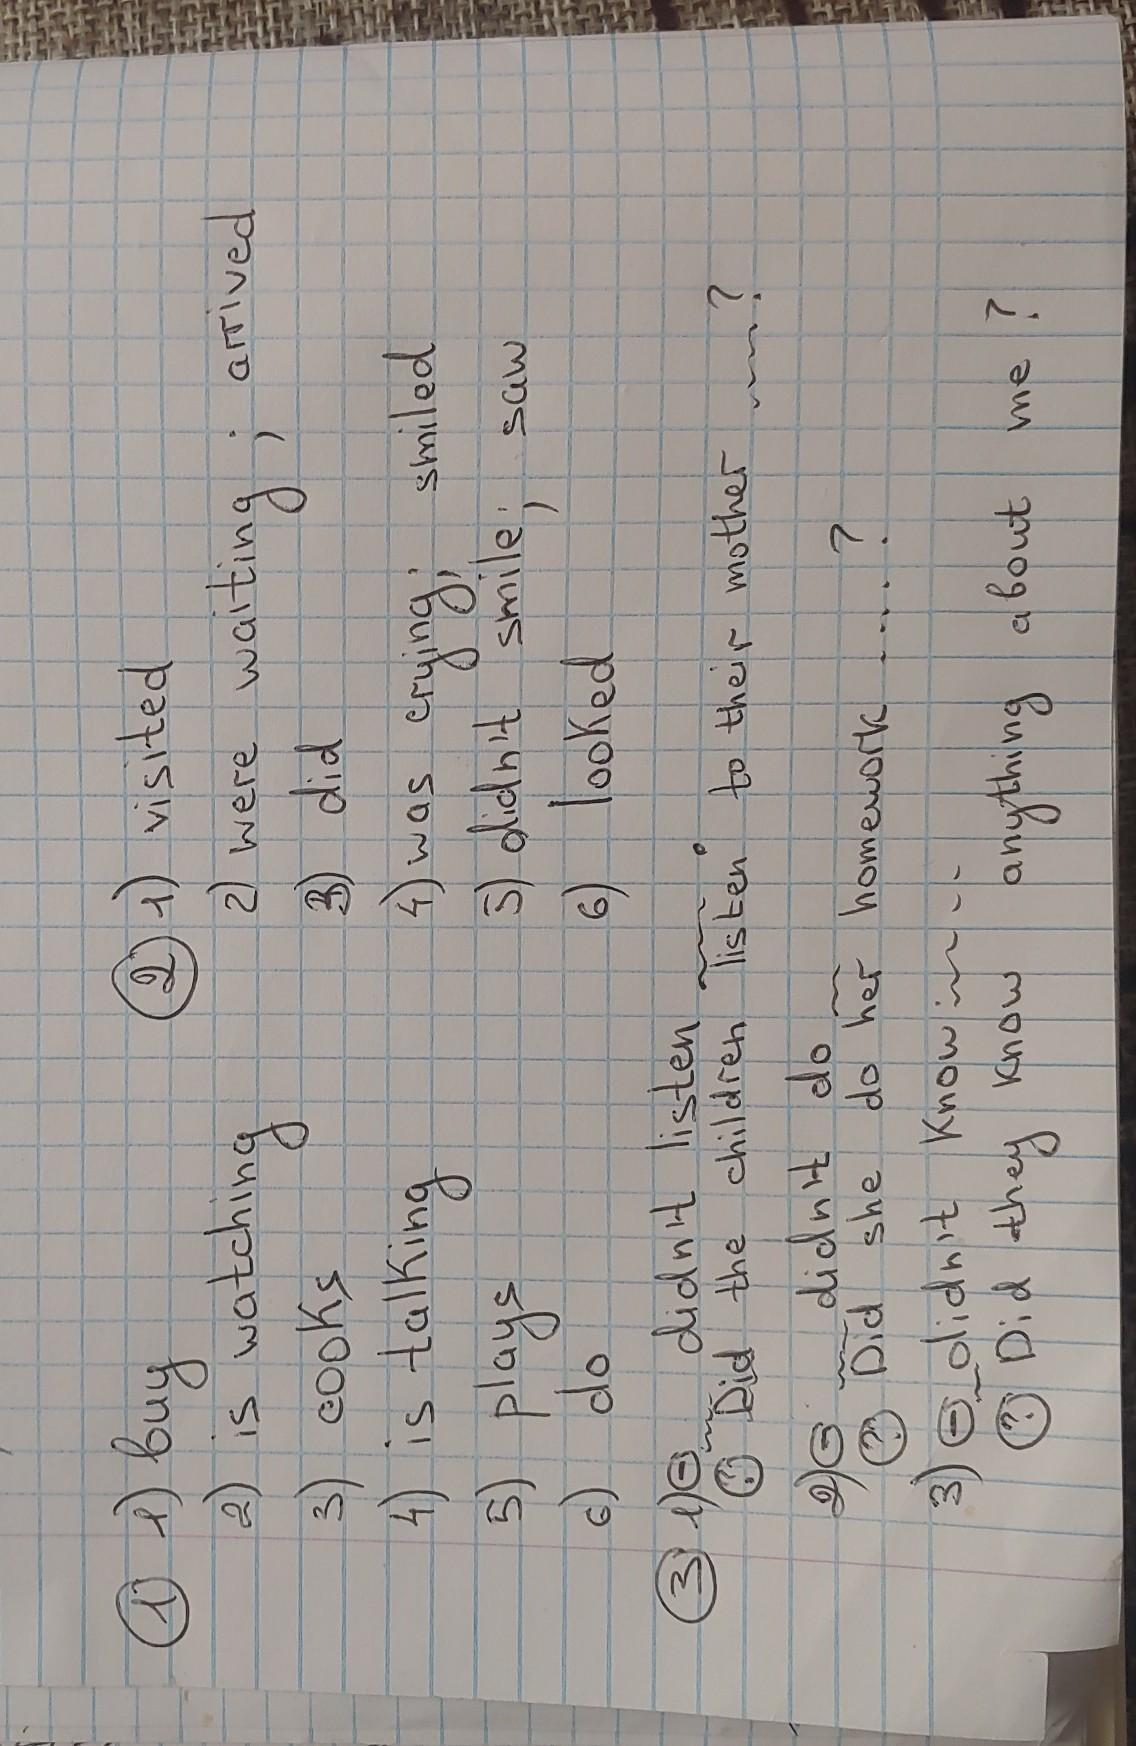 ① 1) buy
2) is watching
3) cooks
4) is talking
5) plays
6) do
② 1) visited
2) were waiting; arrived
3) did
4) was crying; smiled
5) didn't smile; saw
6) looked
③ 1) ⊖ ~ didn't listen ~
? Did the children listen to their mother ~?
2) ⊖ ~ didn't do ~
? Did she do her homework ....?
3) ⊖ ~ didn't know ~ ...
? Did they know anything about me?